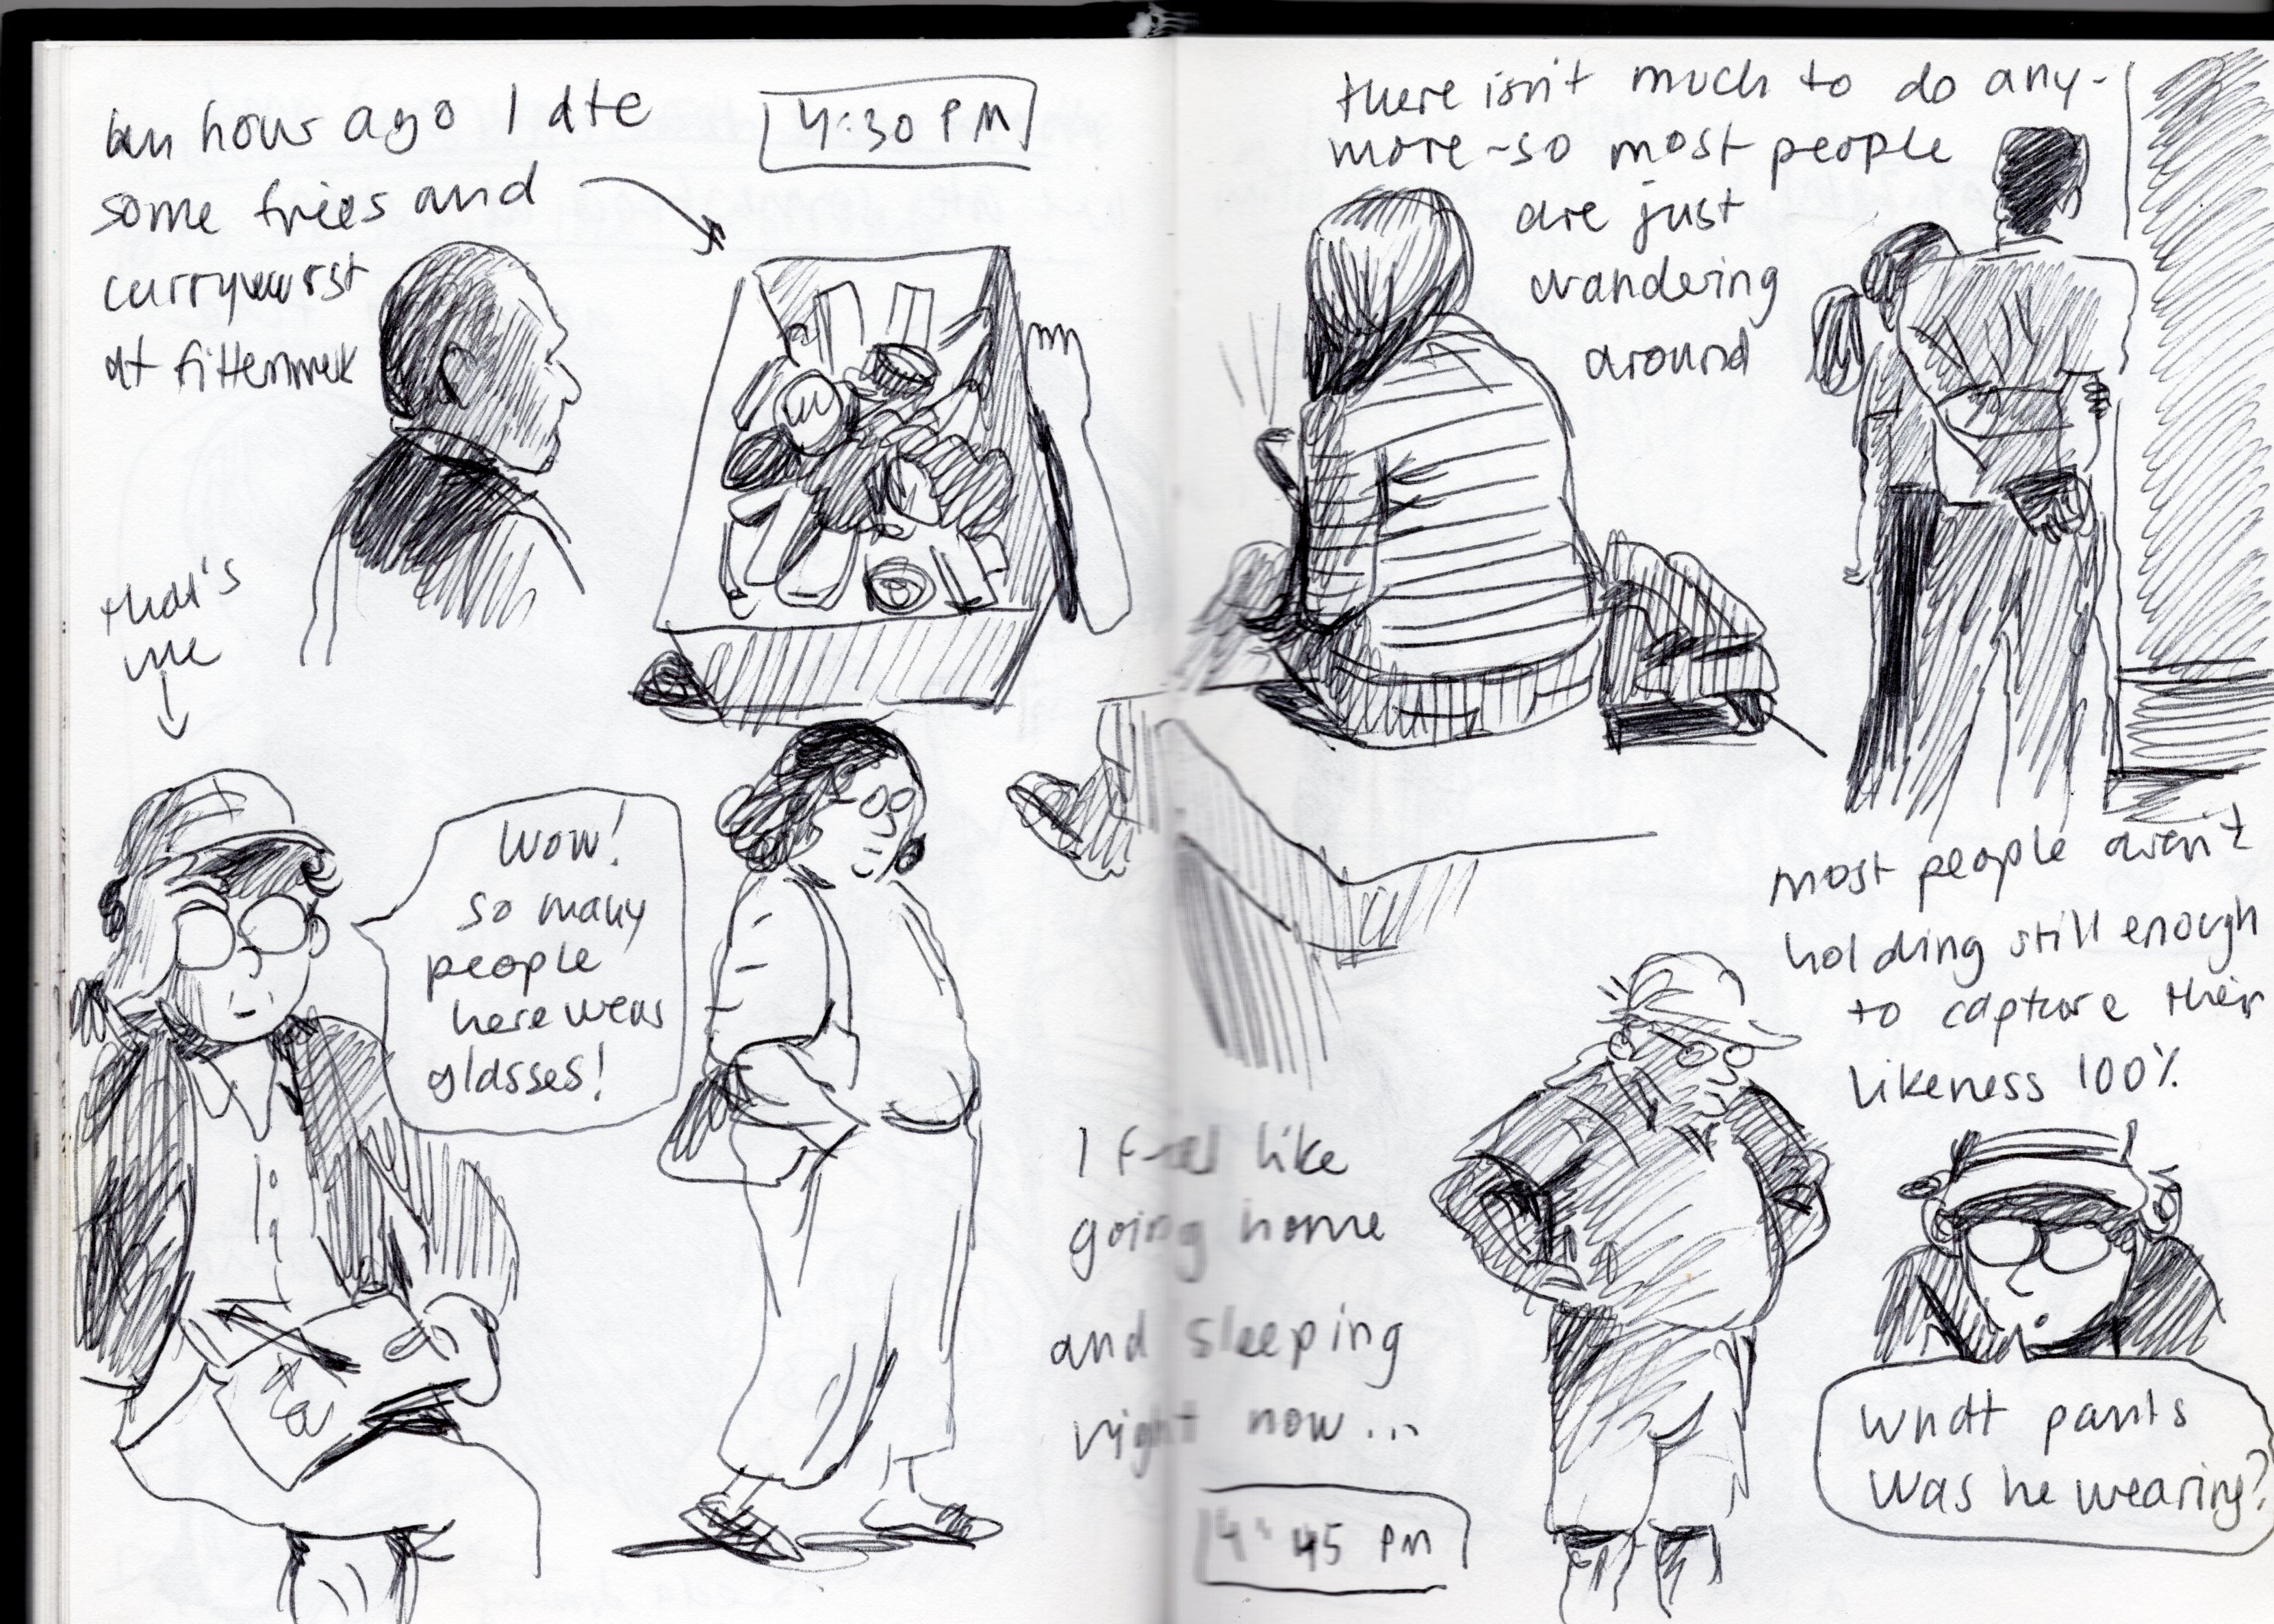 an hour ago I ate
some fries and
currywurst
at
4:30 PM
that's
me
Wow!
so many
people
here wear
glasses!
there isn't much to do any-
more - so most people
are just
wandering
around
most people aren't
holding still enough
to capture their
likeness 100%
I feel like
going home
and sleeping
right now...
4:45 PM
What pants
was he wearing?